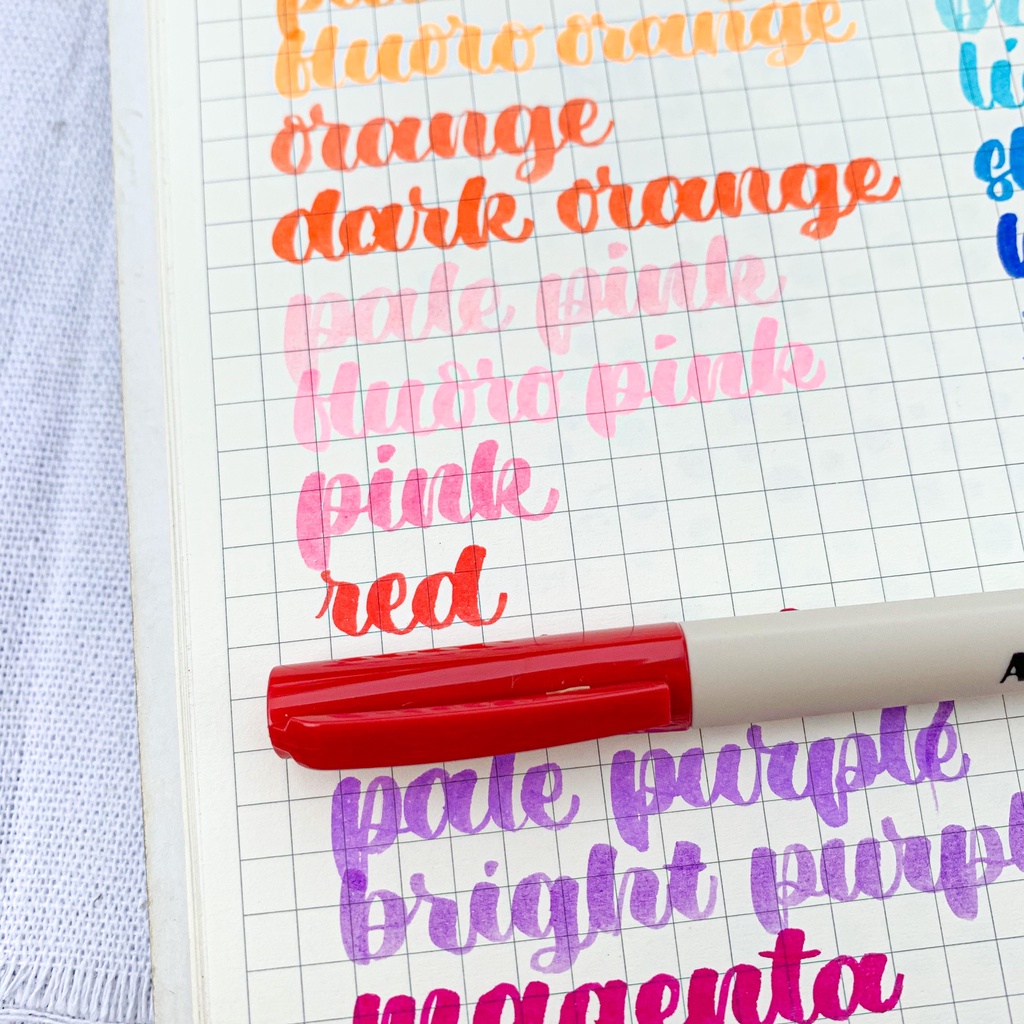 fluoro orange
orange
dark orange
pale pink
fluoro pink
pink
red
pale purple
bright
magenta